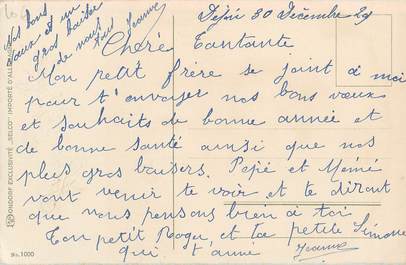 Dijon 30 Décembre 29
Chère Tantante
Mon petit frère se joint à moi
pour t'envoyer nos bons vœux
et souhaits de bonne année et
de bonne santé ainsi que nos
plus gros baisers. Pépé et Mémé
vont venir te voir et te diront
que nous pensons bien à toi
Ton petit Roger et ta petite Simone
qui t'aime Jeanne
Nos bons
vœux et un
gros baiser
de nous
tous Jeanne
ONDORF EXCLUSIVITÉ "SELCO" IMPORTÉ D'ALLEMAGNE
No. 1000